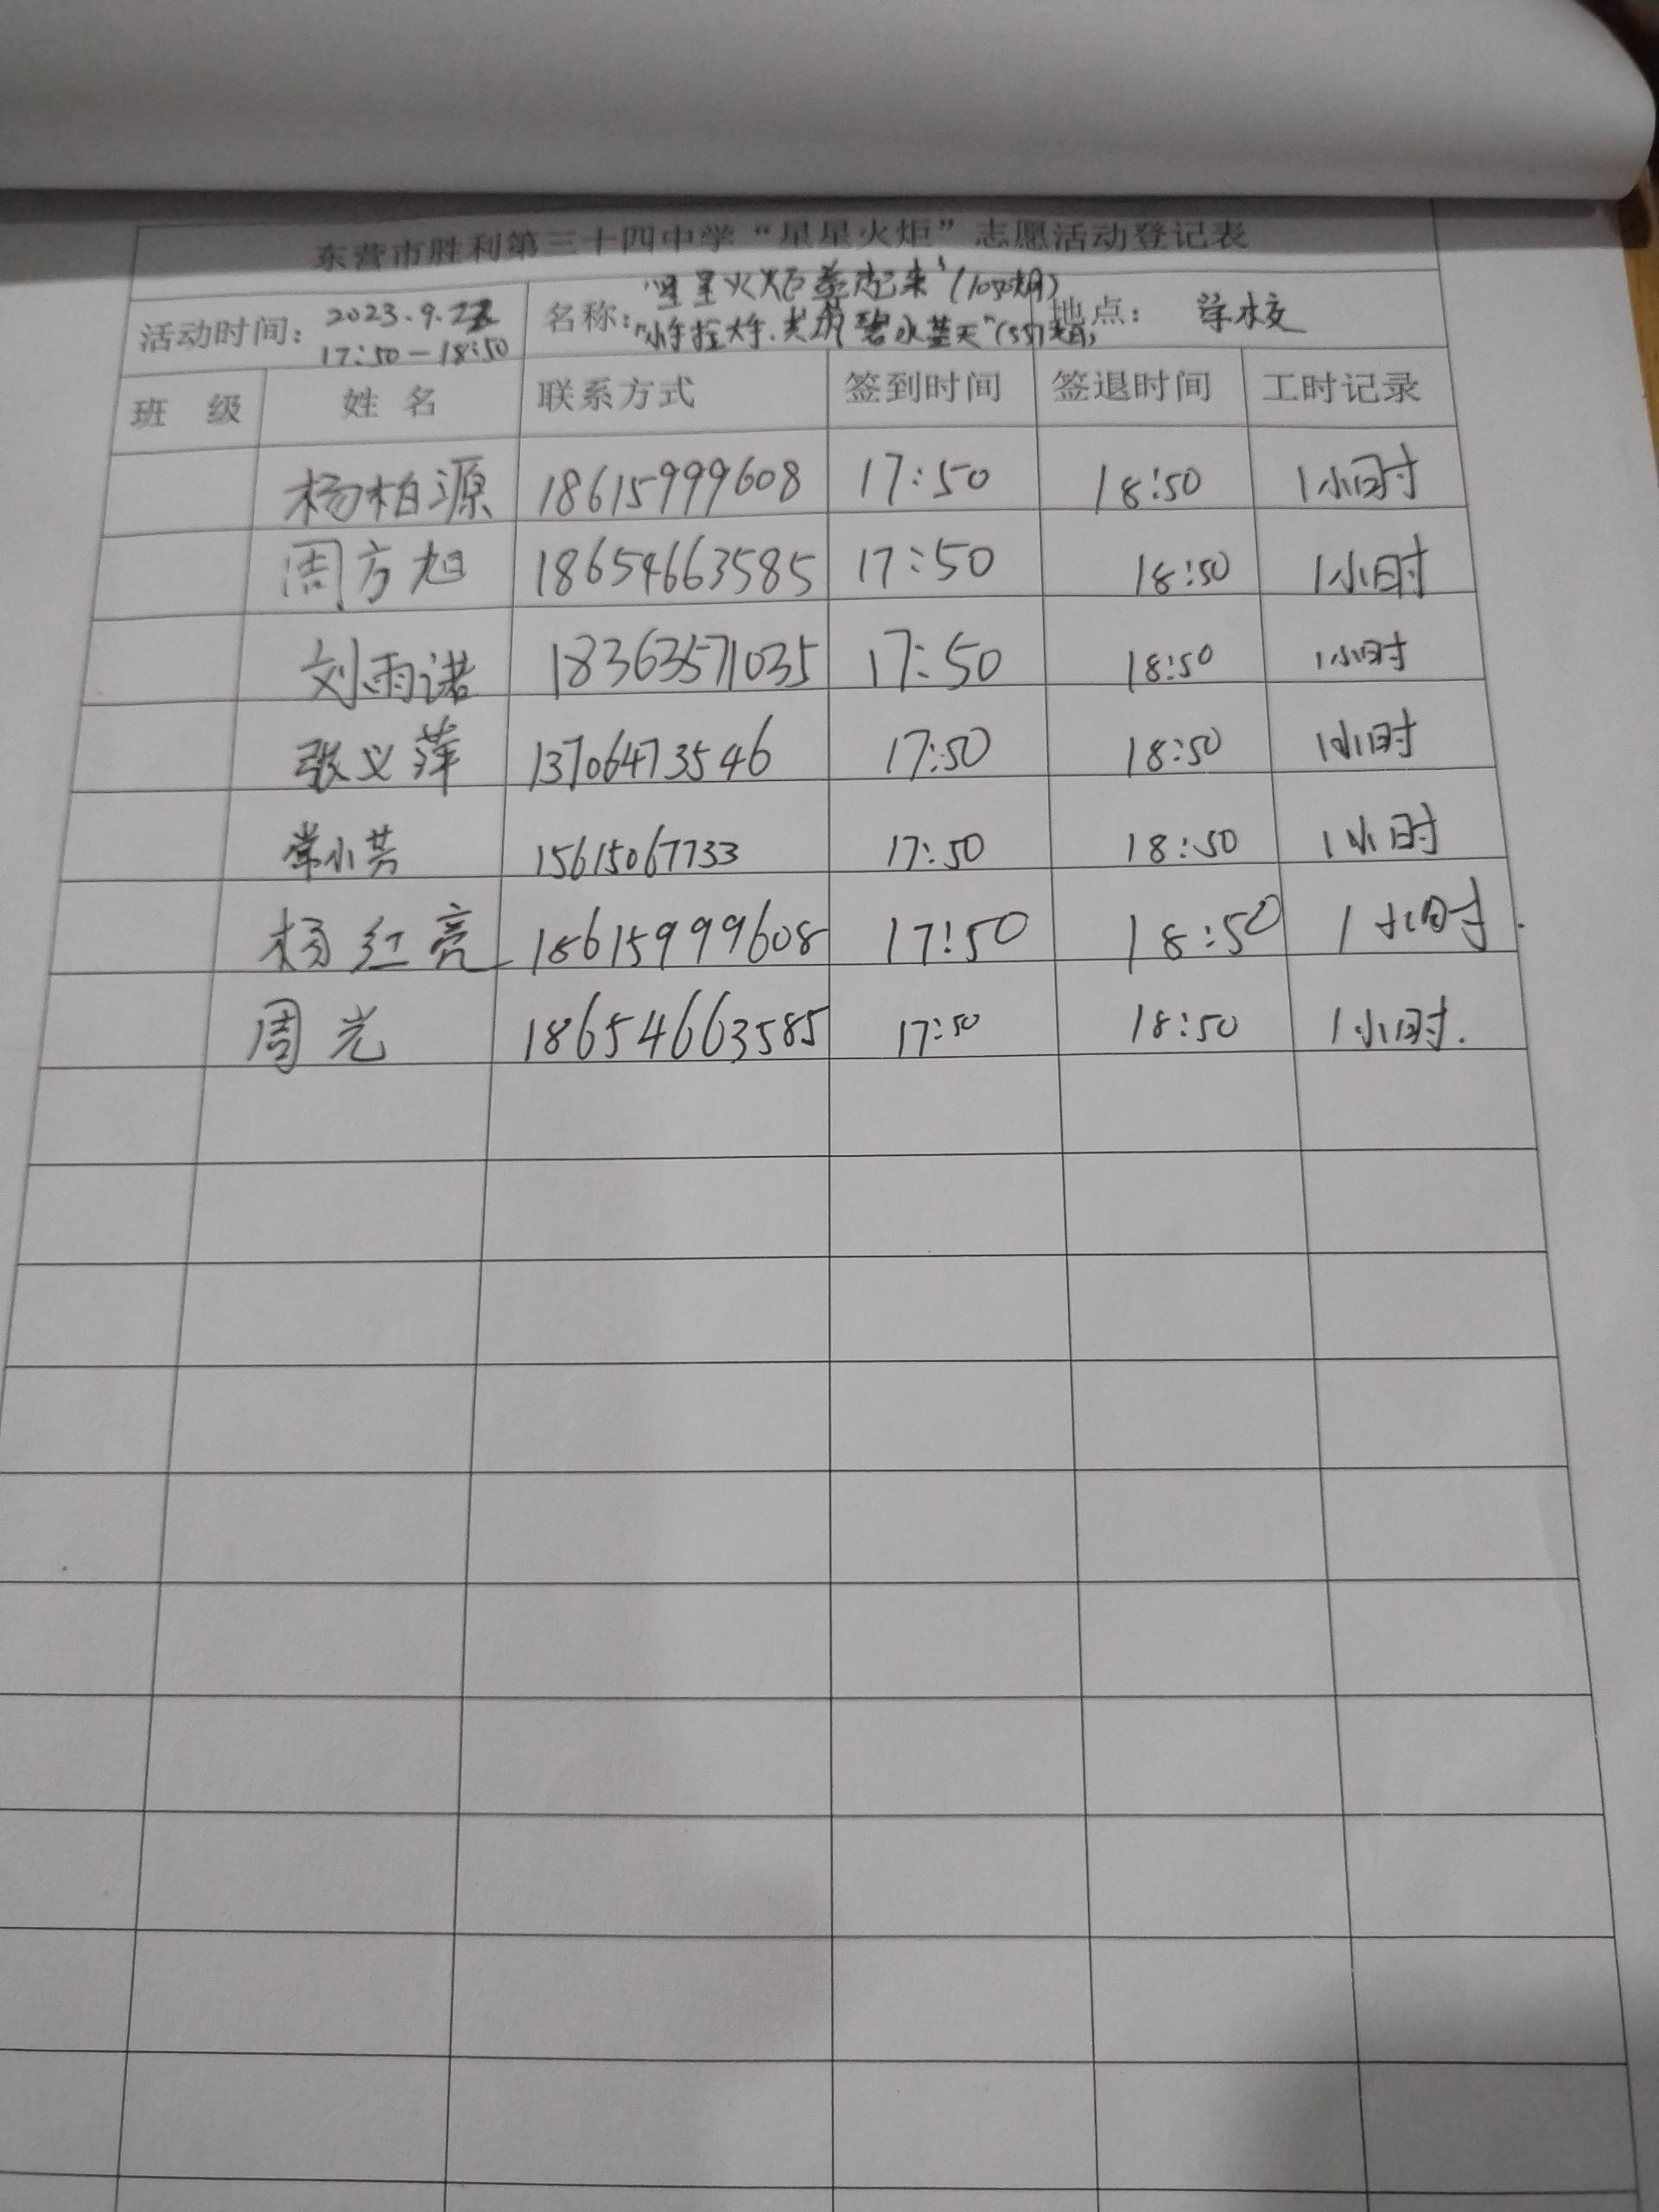 东营市胜利第三十四中学“星星火炬”志愿活动登记表
活动时间： 2023.9.22 17:50－18:50 名称： “星星火炬燃起来”(1050期) “小手拉大手.共筑碧水蓝天”(551期) 地点： 学校
班 级 姓 名 联系方式 签到时间 签退时间 工时记录
杨柏源 18615999608 17:50 18:50 1小时
周方旭 18654663585 17:50 18:50 1小时
刘雨诺 18363571035 17:50 18:50 1小时
张义萍 13706473546 17:50 18:50 1小时
常小芳 15615067733 17:50 18:50 1小时
杨红亮 18615999608 17:50 18:50 1小时.
周光 18654663585 17:50 18:50 1小时.